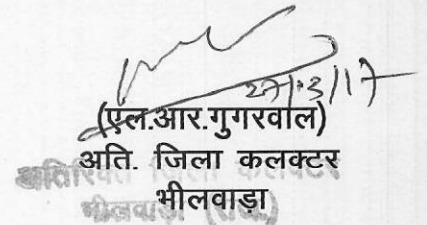 27/3/17
(एल.आर.गुगरवाल)
अति. जिला कलक्टर
भीलवाड़ा
अतिरिक्त जिला कलेक्टर
भीलवाड़ा (राज.)